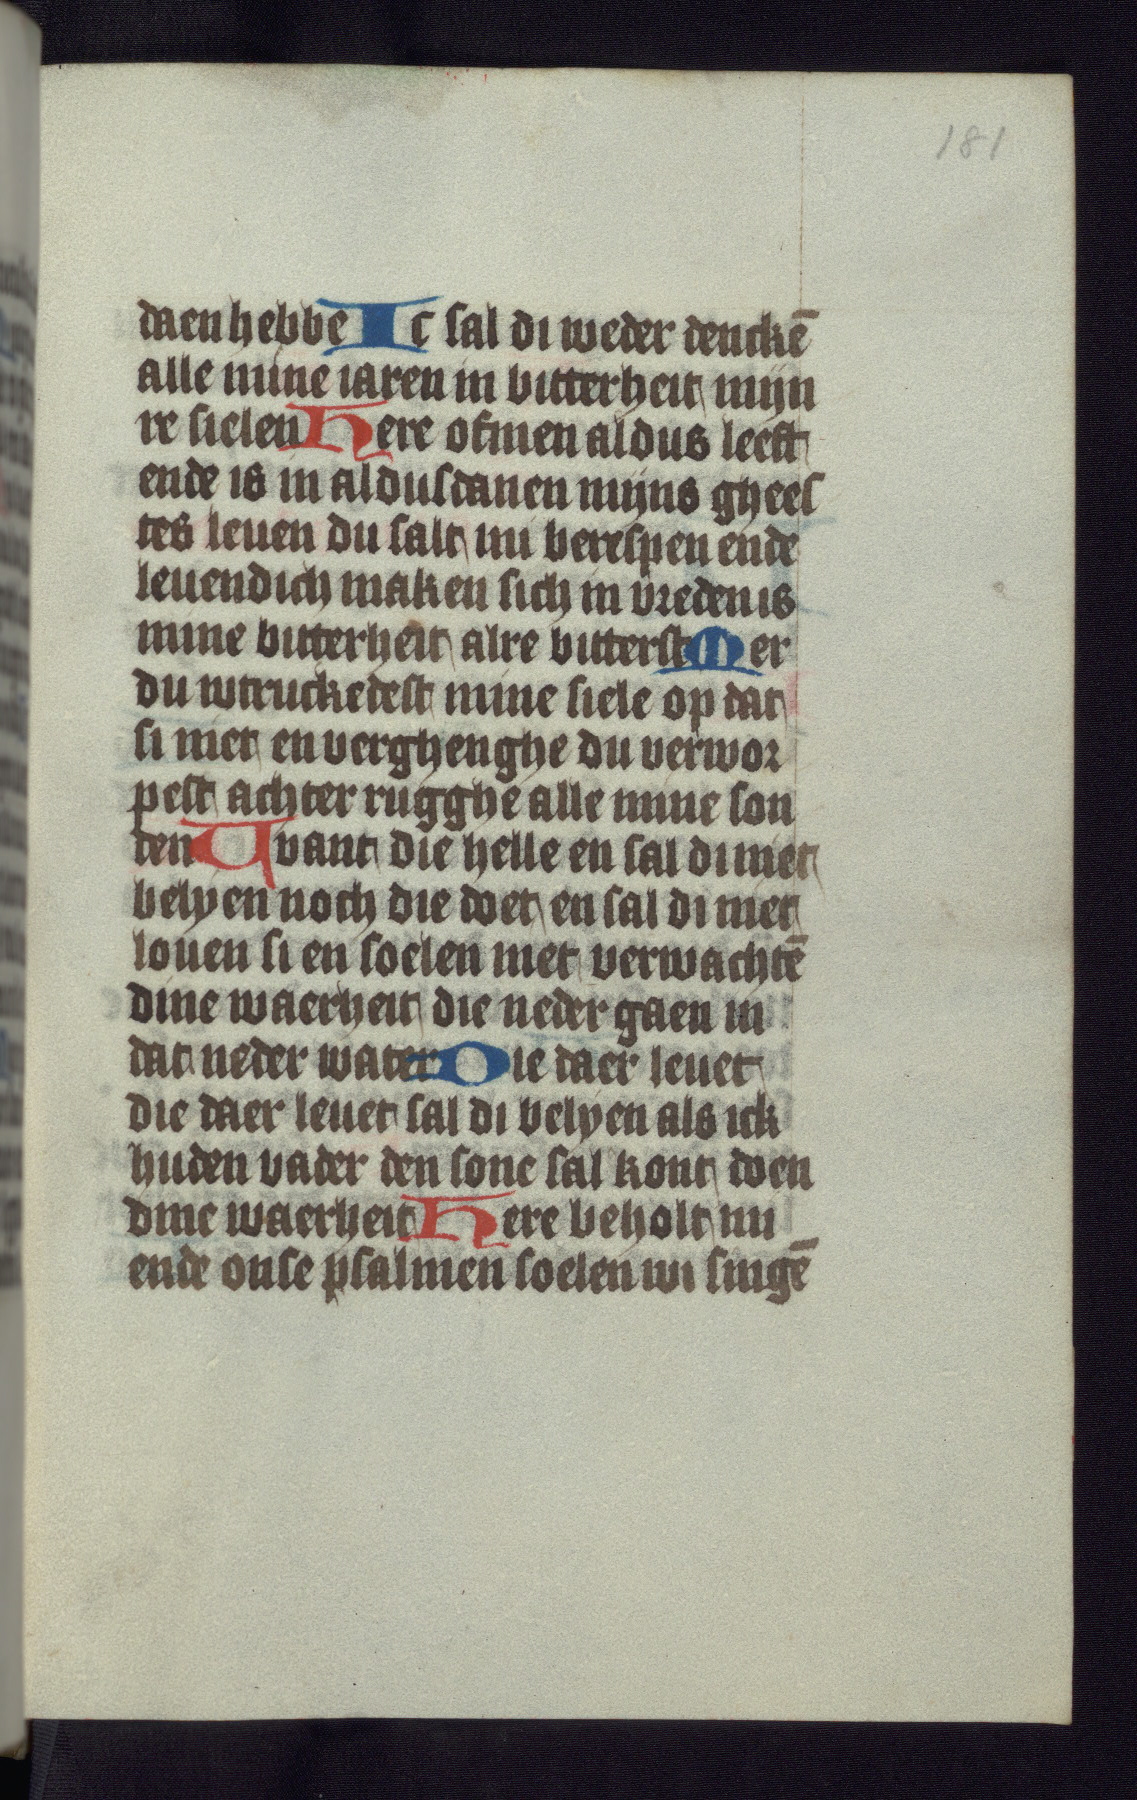 181
daen hebbe Ic sal di weder denckē
alle mine iaren in bitterheit mijn
re sielen Here ofmen aldus leeft
ende is in aldusdanen mijns ghees
tes leuen du salt mi berespen ende
leuendich maken sich in vreden is
mine bitterheit alre bitterst Mer
du wtruckedest mine siele op dat
si niet en verghenghe du verwor
pest achter rugghe alle mine son
den Want die helle en sal di niet
belyen noch die doet en sal di niet
louen si en soelen niet verwachtē
dine waerheit die neder gaen in
dat neder water Die daer leuet
die daer leuet sal di belyen als ick
huden vader den sone sal kont doen
dine waerheit Here beholt mi
ende onse psalmen soelen wi singē